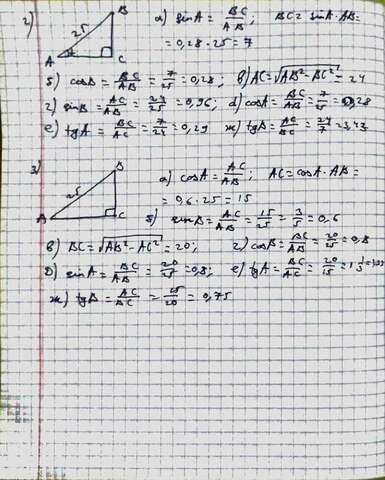 2)
B
25
A
C
а) sinA = BC/AB; BC = sinA·AB=
= 0,28 · 25 = 7
б) cosB = BC/AB = 7/25 = 0,28; в) AC = √AB² - BC² = 24
г) sinB = AC/AB = 24/25 = 0,96; д) cosA = BC/AB = 7/25 = 0,28
е) tgA = BC/AC = 7/24 = 0,29 ж) tgB = AC/BC = 24/7 = 3,43
3)
B
25
A
C
а) cosA = AC/AB; AC = cosA · AB =
= 0,6 · 25 = 15
б) sinB = AC/AB = 15/25 = 3/5 = 0,6
в) BC = √AB² - AC² = 20; г) cosB = BC/AB = 20/25 = 0,8
д) sinA = BC/AB = 20/25 = 0,8; е) tgA = BC/AC = 20/15 = 1 1/3
ж) tgB = AC/BC = 15/20 = 0,75